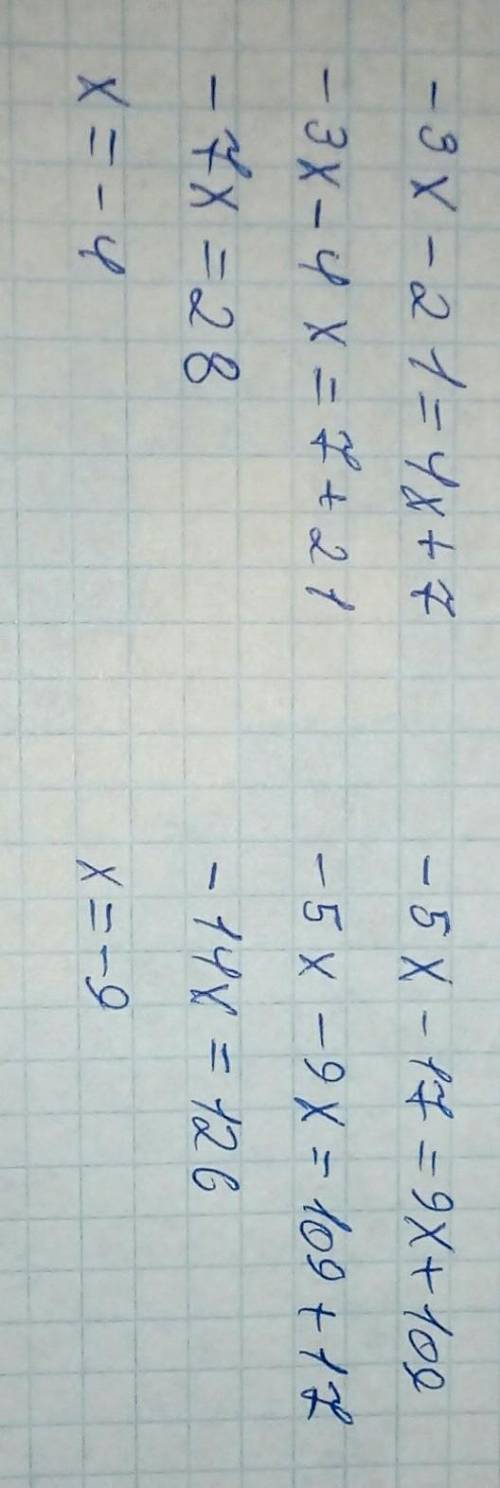 -3x-21=4x+7
-3x-4x=7+21
-7x=28
x=-4
-5x-17=9x+109
-5x-9x=109+17
-14x=126
x=-9